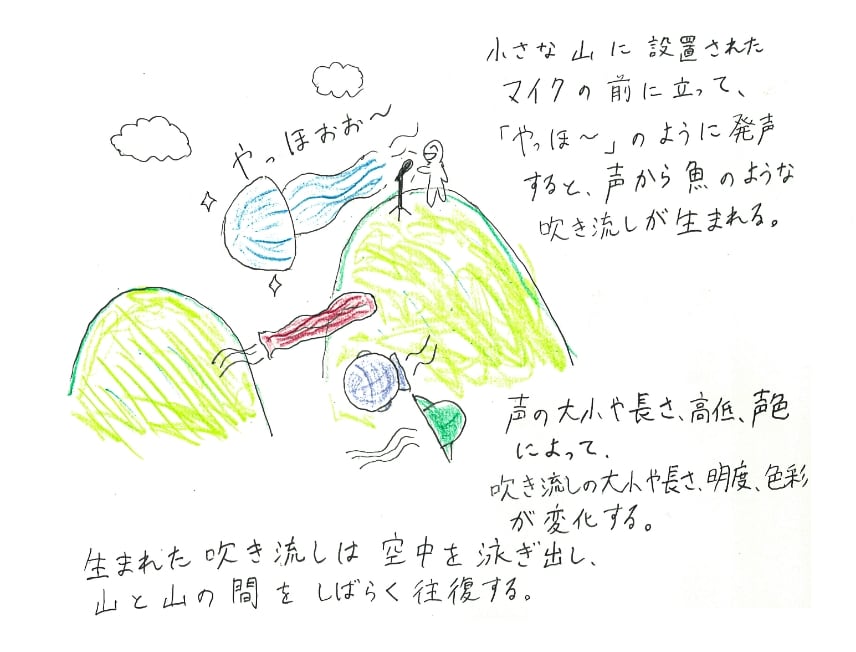 小さな山に設置された
マイクの前に立って、
「やっほ～」のように発声
すると、声から魚のような
吹き流しが生まれる。
やっほぉぉ～
声の大小や長さ、高低、声色
によって、
吹き流しの大小や長さ、明度、色彩
が変化する。
生まれた吹き流しは空中を泳ぎ出し、
山と山の間をしばらく往復する。